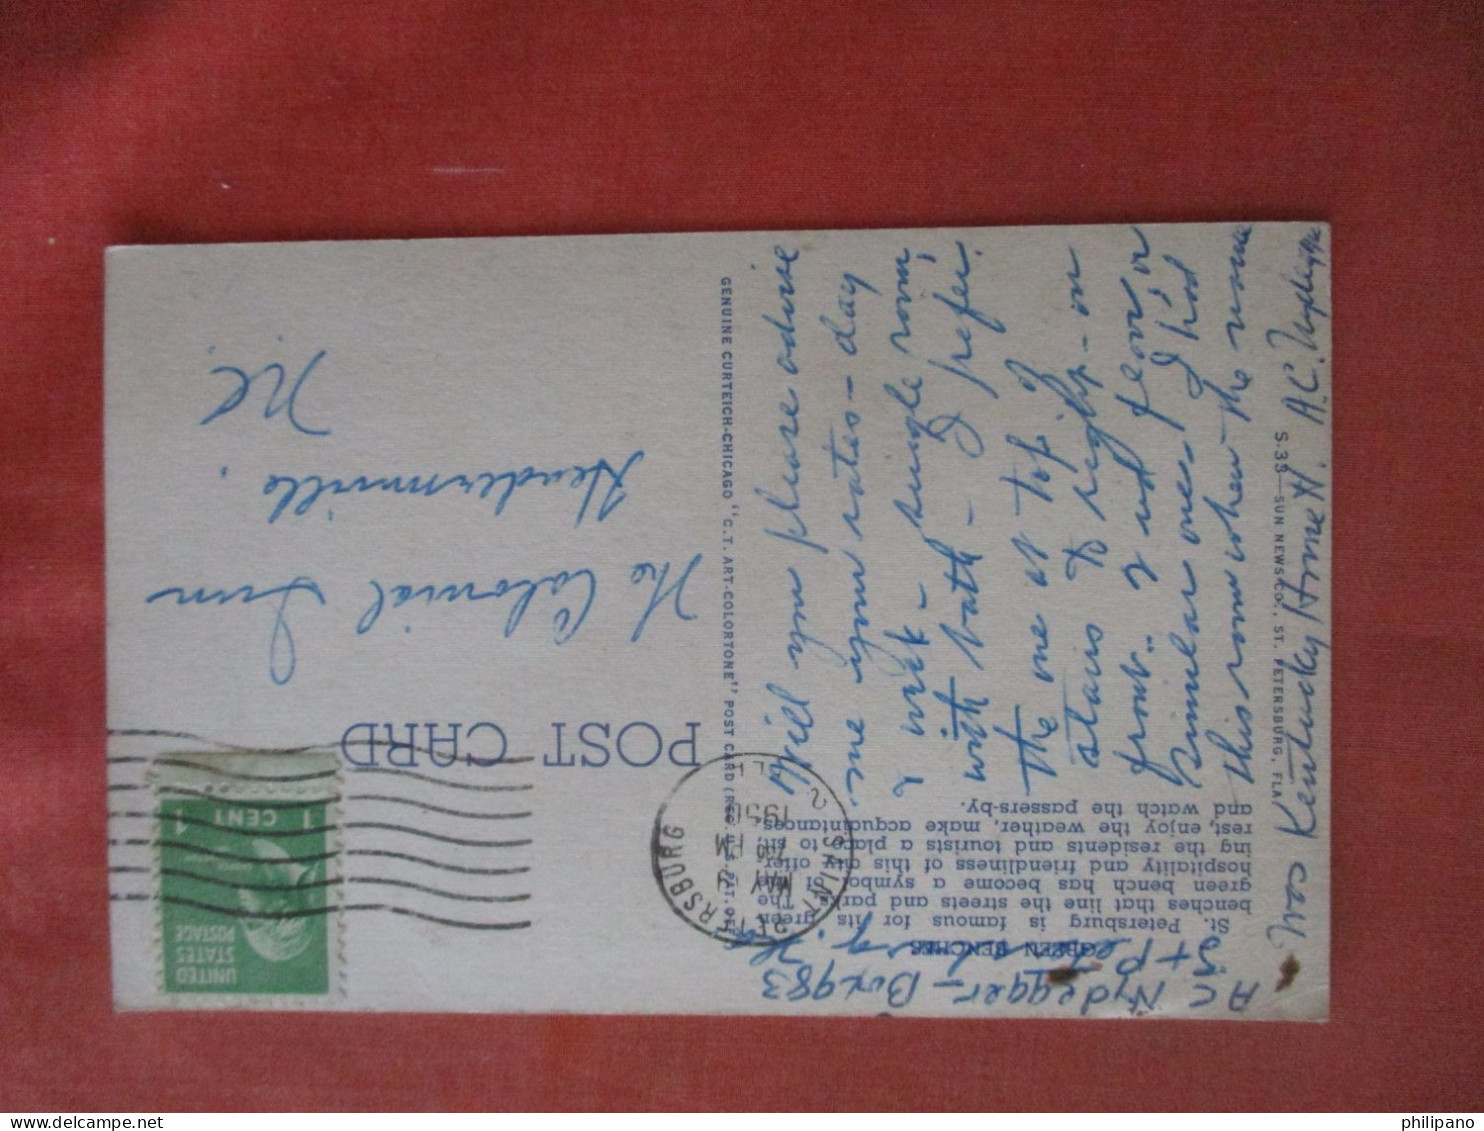 GREEN BENCHES
St. Petersburg is famous for its green
benches that line the streets and parks. The
green bench has become a symbol of the
hospitality and friendliness of this city, offer-
ing the residents and tourists a place to sit,
rest, enjoy the weather, make acquaintances
and watch the passers-by.
A C Nydegger - Box 983
St Petersburg. Fla
Will you please advise
me your rates - day
& week - single room,
with bath - I prefer
the one at top of
stairs to right - on
front & 2nd floor or
similar ones I had
this room when the name
was Kentucky Home H. A.C. Nydegger
S-33—SUN NEWS CO., ST. PETERSBURG, FLA.
GENUINE CURTEICH-CHICAGO "C.T. ART-COLORTONE" POST CARD (REG. U.S. PAT. OFF.)
POST CARD
ST. PETERSBURG
MAY 9
PM
1950
2
UNITED
STATES
POSTAGE
1 CENT 1
The Colonial Inn
Hendersonville,
N.C.
philipano